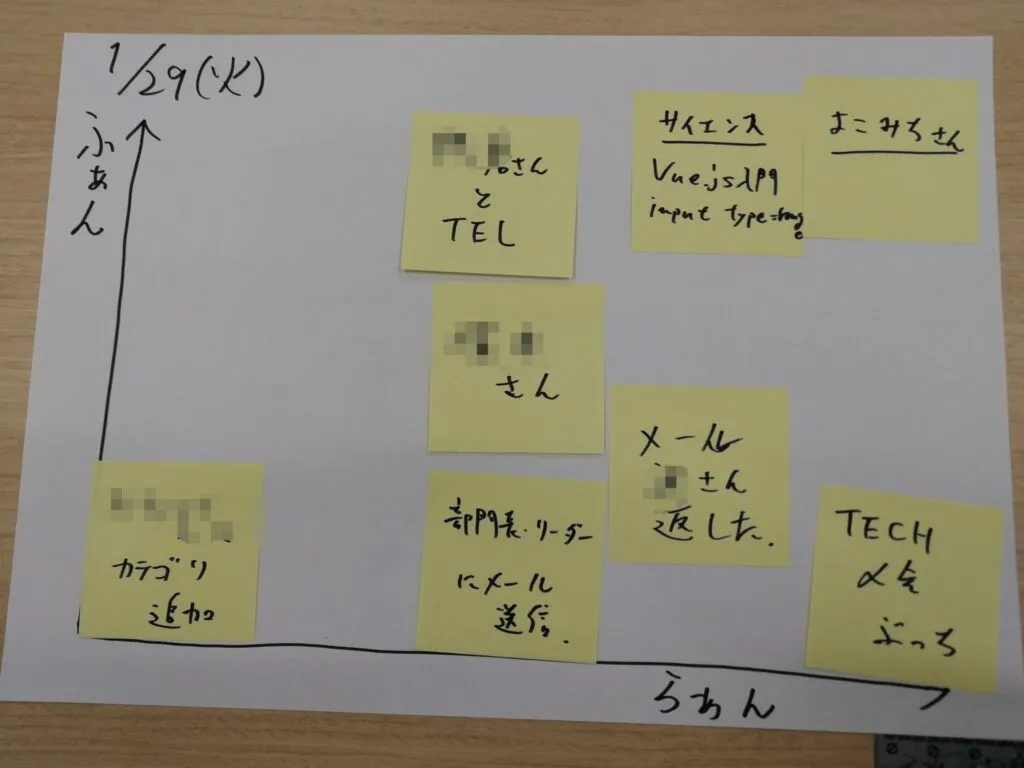 1/29(火)
ふぁん
さん
と
TEL
サイエンス
Vue.js入門
input type=
よこみちさん
さん
メール
さん
返した.
カテゴリ
追加
部門長・リーダー
にメール
送信.
TECH
〆会
ぶっち
らぁん